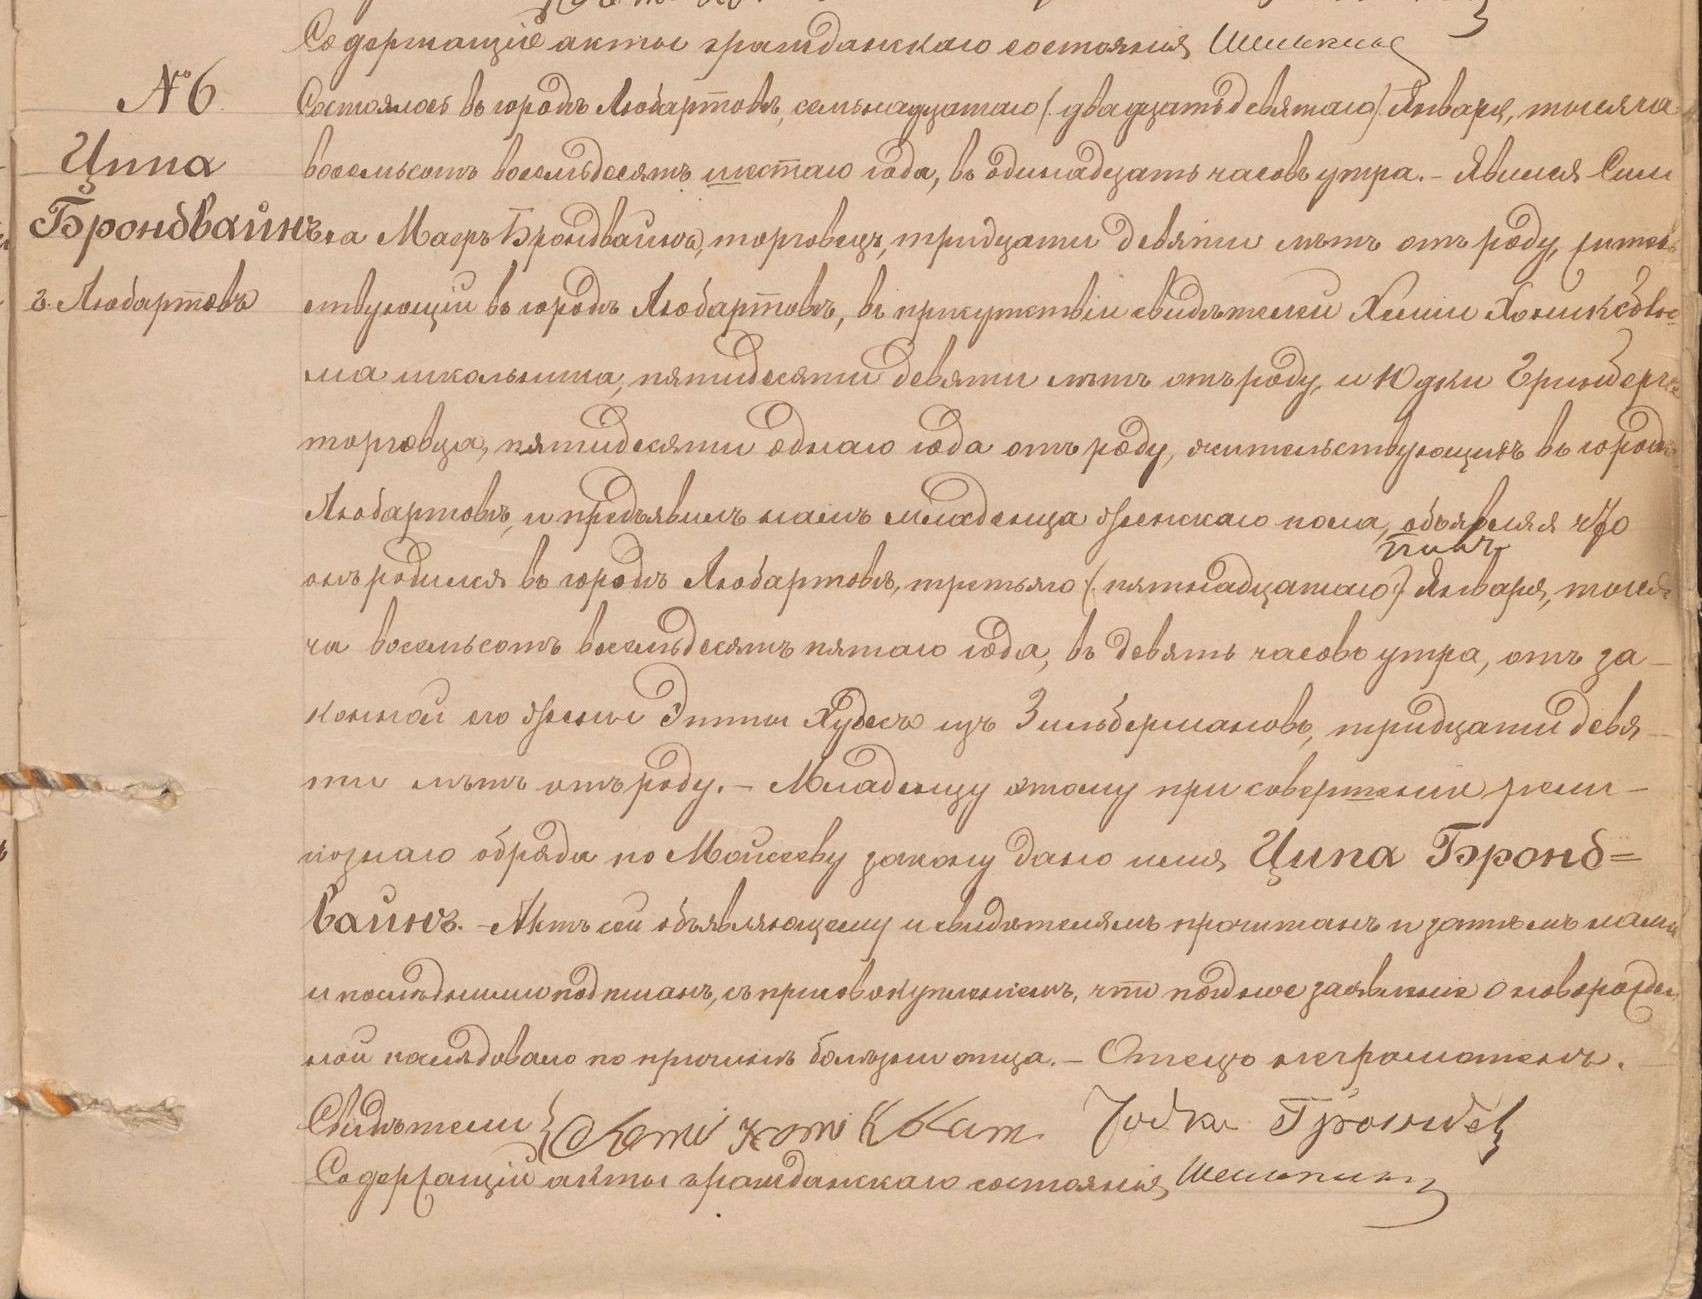 Содержащій акты гражданскаго состоянія
№ 6
Ципа
Бронбвайнъ
г. Любартовъ
Состоялось въ городѣ Любартовѣ, семьнадцатаго (двадцать девятаго) Января, тысяча
восемьсотъ восемьдесятъ шестаго года, въ одинадцать часовъ утра. – Явился Сим
ха Маеръ Брондвайнъ, торговецъ, тридцати девяти лѣтъ отъ роду, житель
ствующій въ городѣ Любартовѣ, въ присутствіи свидѣтелей
ма школьника, пятидесяти девяти лѣтъ отъ роду, и Юдки Гринберга
торговца, пятидесяти однаго года отъ роду, жительствующихъ въ городѣ
Любартовѣ, и предъявилъ намъ младенца женскаго пола, объявляя что
онъ родился въ городѣ Любартовѣ, третьяго (пятнадцатаго) Января, тыся
ча восемьсотъ восемьдесятъ пятаго года, въ девять часовъ утра, отъ за–
конной его жены Этты Худесъ изъ Зильбермановъ, тридцати девя–
ти лѣтъ отъ роду. – Младенцу этому при совершеніи рели–
гіознаго обряда по Моисееву закону дано имя Ципа Бронб=
вайнъ. – Актъ сей объявляющему и свидѣтелямъ прочитанъ и затѣмъ нами
и послѣдними подписанъ, съ присовокупленіемъ, что позднее заявленіе о новорожден
ной послѣдовало по причинѣ болѣзни отца. – Отецъ неграмотенъ.
Свидѣтели {
Содержащій акты гражданскаго состоянія